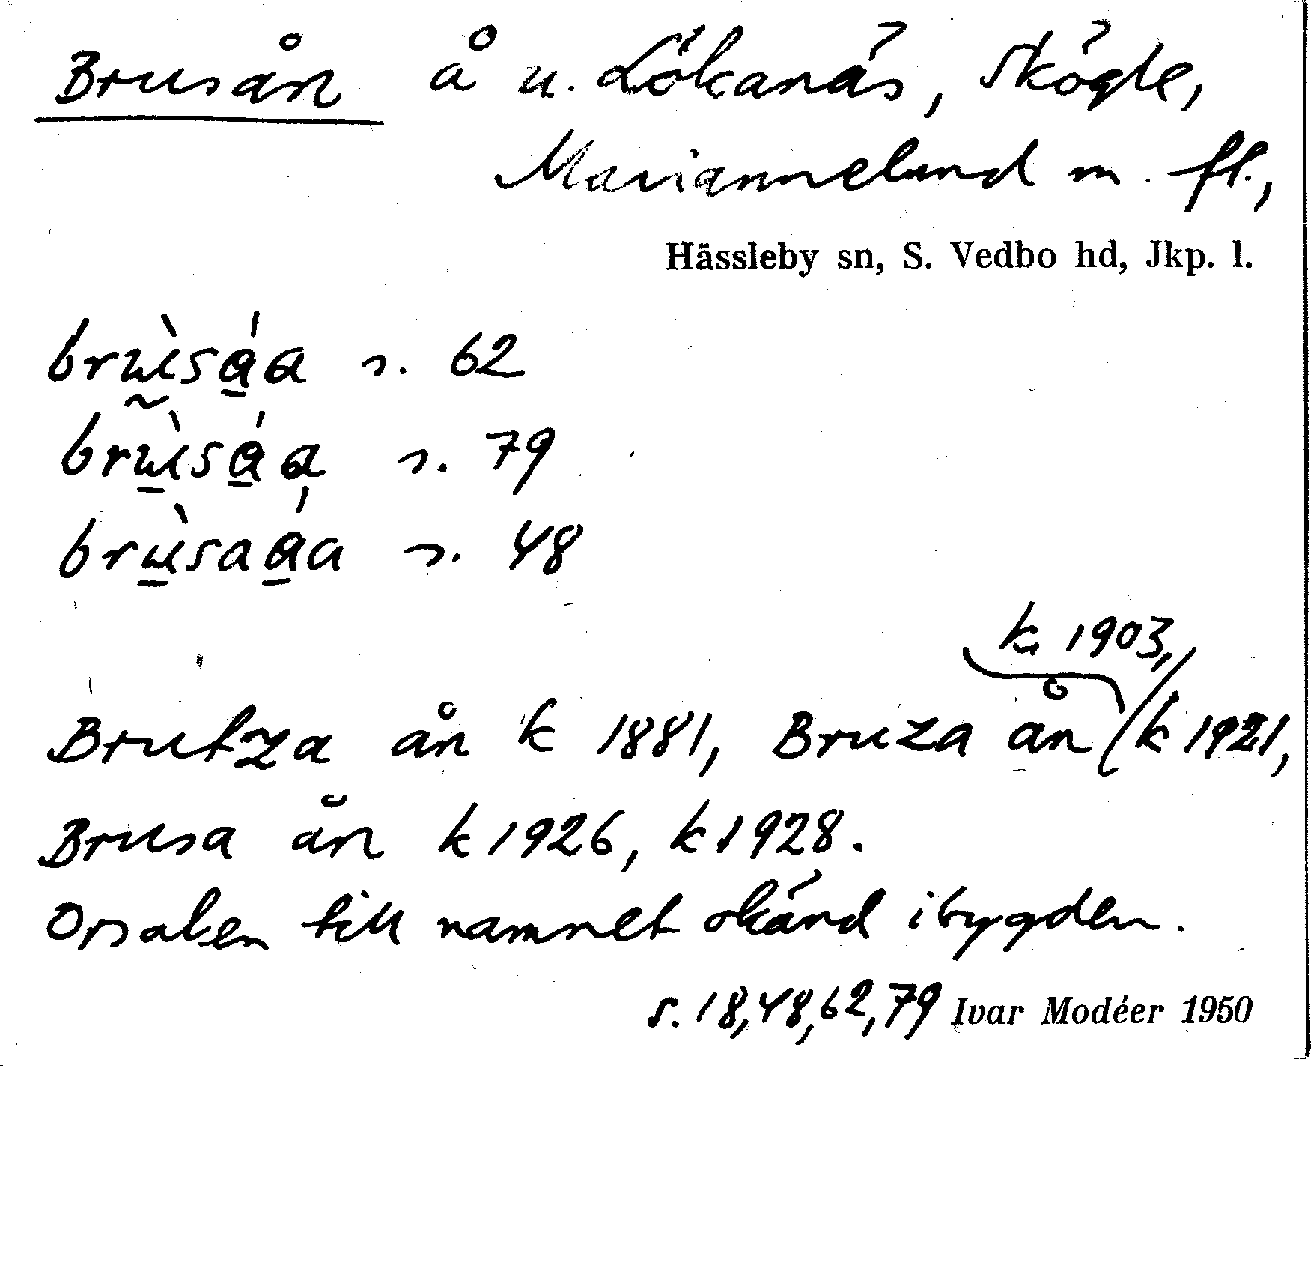 Brusån å u. Lökanäs, Skögle,
Mariannelund m. fl.,
Hässleby sn, S. Vedbo hd, Jkp. l.
s. 62
s. 79
s. 48
k 1903,
Brutza ån k 1881, Bruza ån k 1921,
Brusa ån k 1926, k 1928.
Orsaken till namnet okänd i bygden.
s. 18, 48, 62, 79 Ivar Modéer 1950